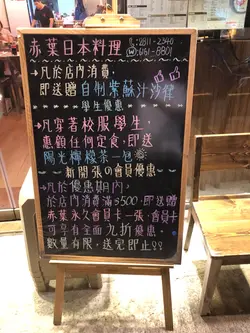 赤葉日本料理
→凡於店內消費,
即送贈自制紫蘇汁沙律
學生優惠
→凡穿著校服學生,
惠顧任何定食,即送
陽光檸檬茶一包
~新開張の會員優惠~
→凡於優惠期內,
於店內消費滿$500,即送贈
赤葉永久會員卡一張,會員卡
可享有全面九折優惠,
數量有限,送完即止!!